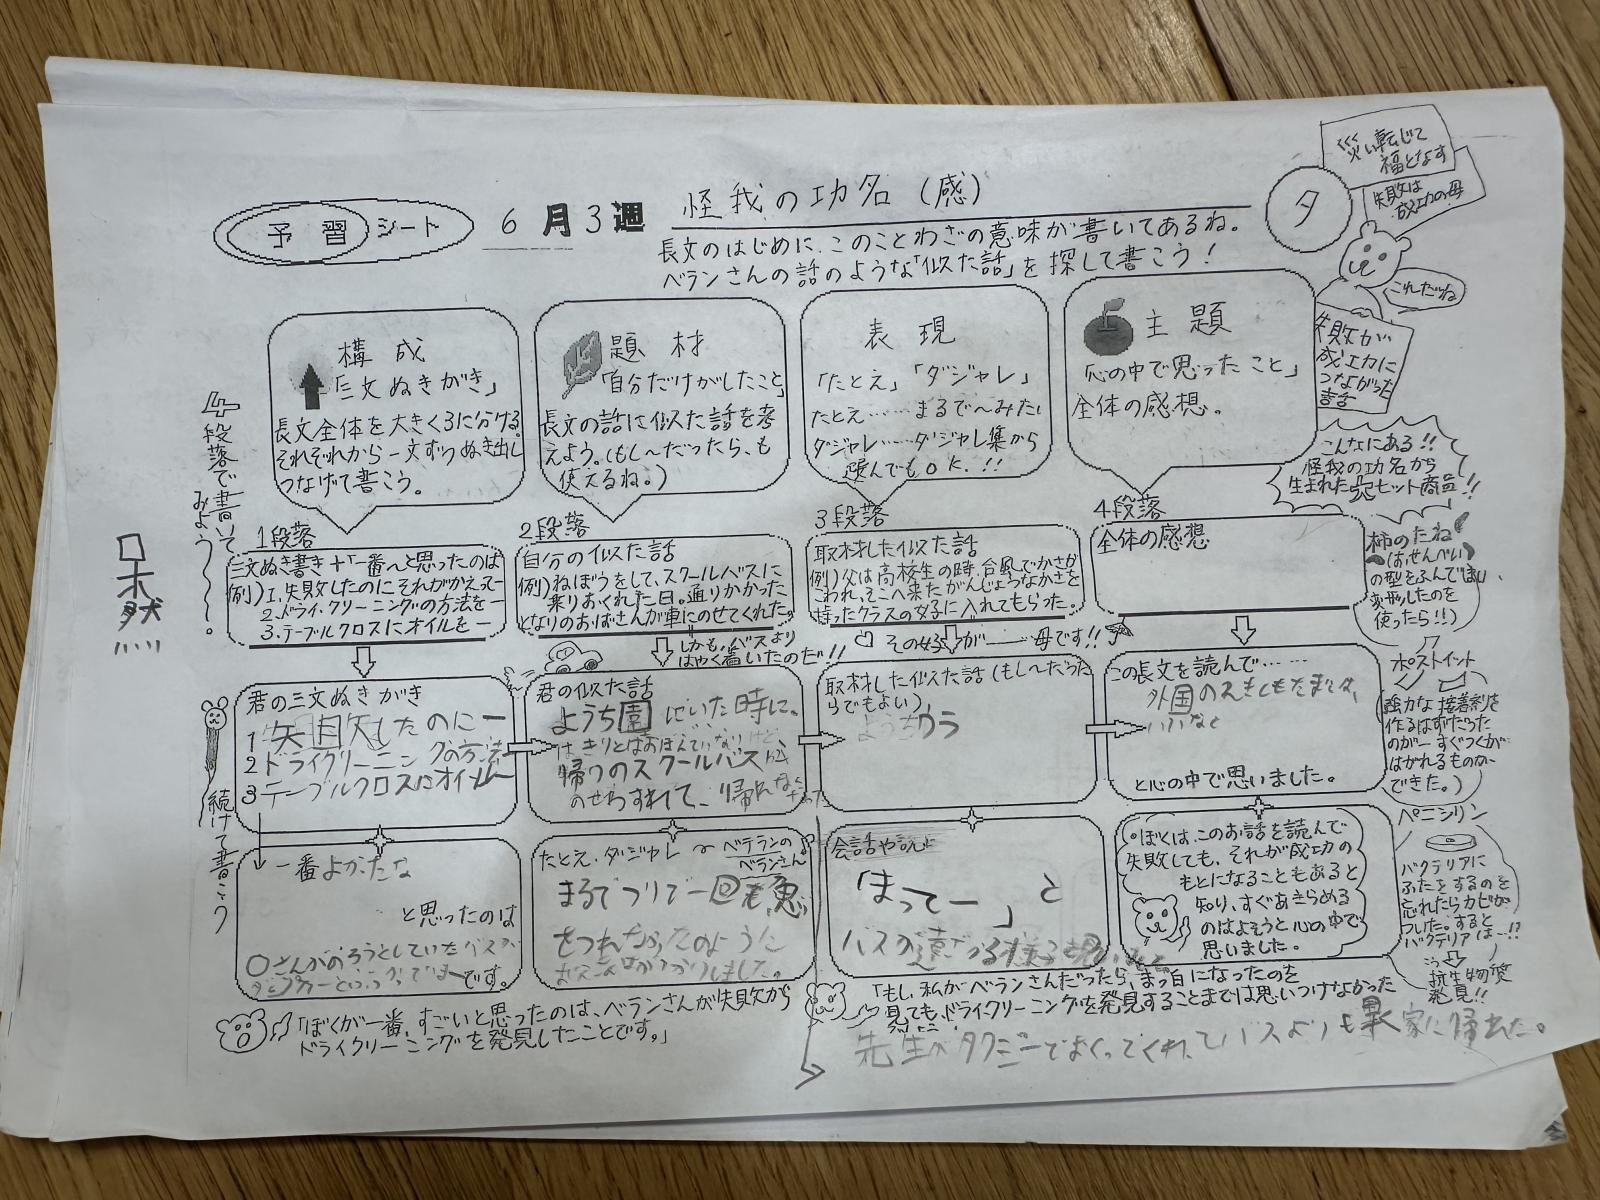 予習シート
6月3週
怪我の功名（感）
タ
長文のはじめに、このことわざの意味が書いてあるね。
ベランさんの話のような「似た話」を探して書こう！
災い転じて
福となす
失敗は
成功の母
これだね
失敗が
成功に
つながった
話
4段落で書いて
みよう〜。
構成
「三文ぬきがき」
長文全体を大きく3に分ける。
それぞれから一文ずつぬき出し
つなげて書こう。
題材
「自分だけがしたこと」
長文の話に似た話を考
えよう。（もし〜だったら、も
使えるね。）
表現
「たとえ」「ダジャレ」
たとえ……まるで〜みたい
ダジャレ……ダジャレ集から
選んでもOK.!!
主題
「心の中で思ったこと」
全体の感想。
こんなにある!!
怪我の功名から
生まれた大ヒット商品!!
1段落
三文ぬき書き＋「一番〜と思ったのは
例）1.失敗したのにそれがかえって―
2.ドライ・クリーニングの方法を―
3.テーブルクロスにオイルを―
2段落
自分の似た話
例）ねぼうをして、スクールバスに
乗りおくれた日。通りかかった
となりのおばさんが車にのせてくれた。
しかも、バスより
はやく着いたのだ!!
3段落
取材した似た話
例）父は高校生の時、台風でかさが
こわれ、そこへ来たがんじょうなかさを
持ったクラスの女子に入れてもらった。
その女子が――母です!!
4段落
全体の感想
柿のたね
は、せんべい
の型をふんでしまい、
変形したのを
使ったら!!）
ポストイット
強力な接着剤を
作るはずだった
のが―すぐつくが
はがれるものが
できた。）
ペニシリン
バクテリアに
ふたをするのを
忘れたらカビが
ついた。すると
バクテリアは―!?
抗生物質
発見!!
続けて書こう
君の三文ぬきがき
1 失敗したのに―
2 ドライクリーニングの方法―
3 テーブルクロスにオイル―
君の似た話
ようち園にいた時に、
はっきりとはおぼえていないけど
帰りのスクールバスに
のせわすれて、帰れなくなった
取材した似た話（もし〜だった
らでもよい）
この長文を読んで……
外国の
と心の中で思いました。
一番よかたな
と思ったのは
です。
たとえ・ダジャレ
ベテランの
ベランさん
まるでつりで一回も魚
をつれなかったのように
がっかりしました。
会話や説
「まってー」と
バスが遠ざかる様子
○ぼくは、このお話を読んで
失敗しても、それが成功の
もとになることもあると
知り、すぐあきらめる
のはよそうと心の中で
思いました。
「ぼくが一番、すごいと思ったのは、ベランさんが失敗から
ドライクリーニングを発見したことです。」
「もし、私がベランさんだったら、まっ白になったのを
見てもドライクリーニングを発見することまでは思いつけなかった
先生がタクシーでおくってくれてバスよりも早く家に帰れた。